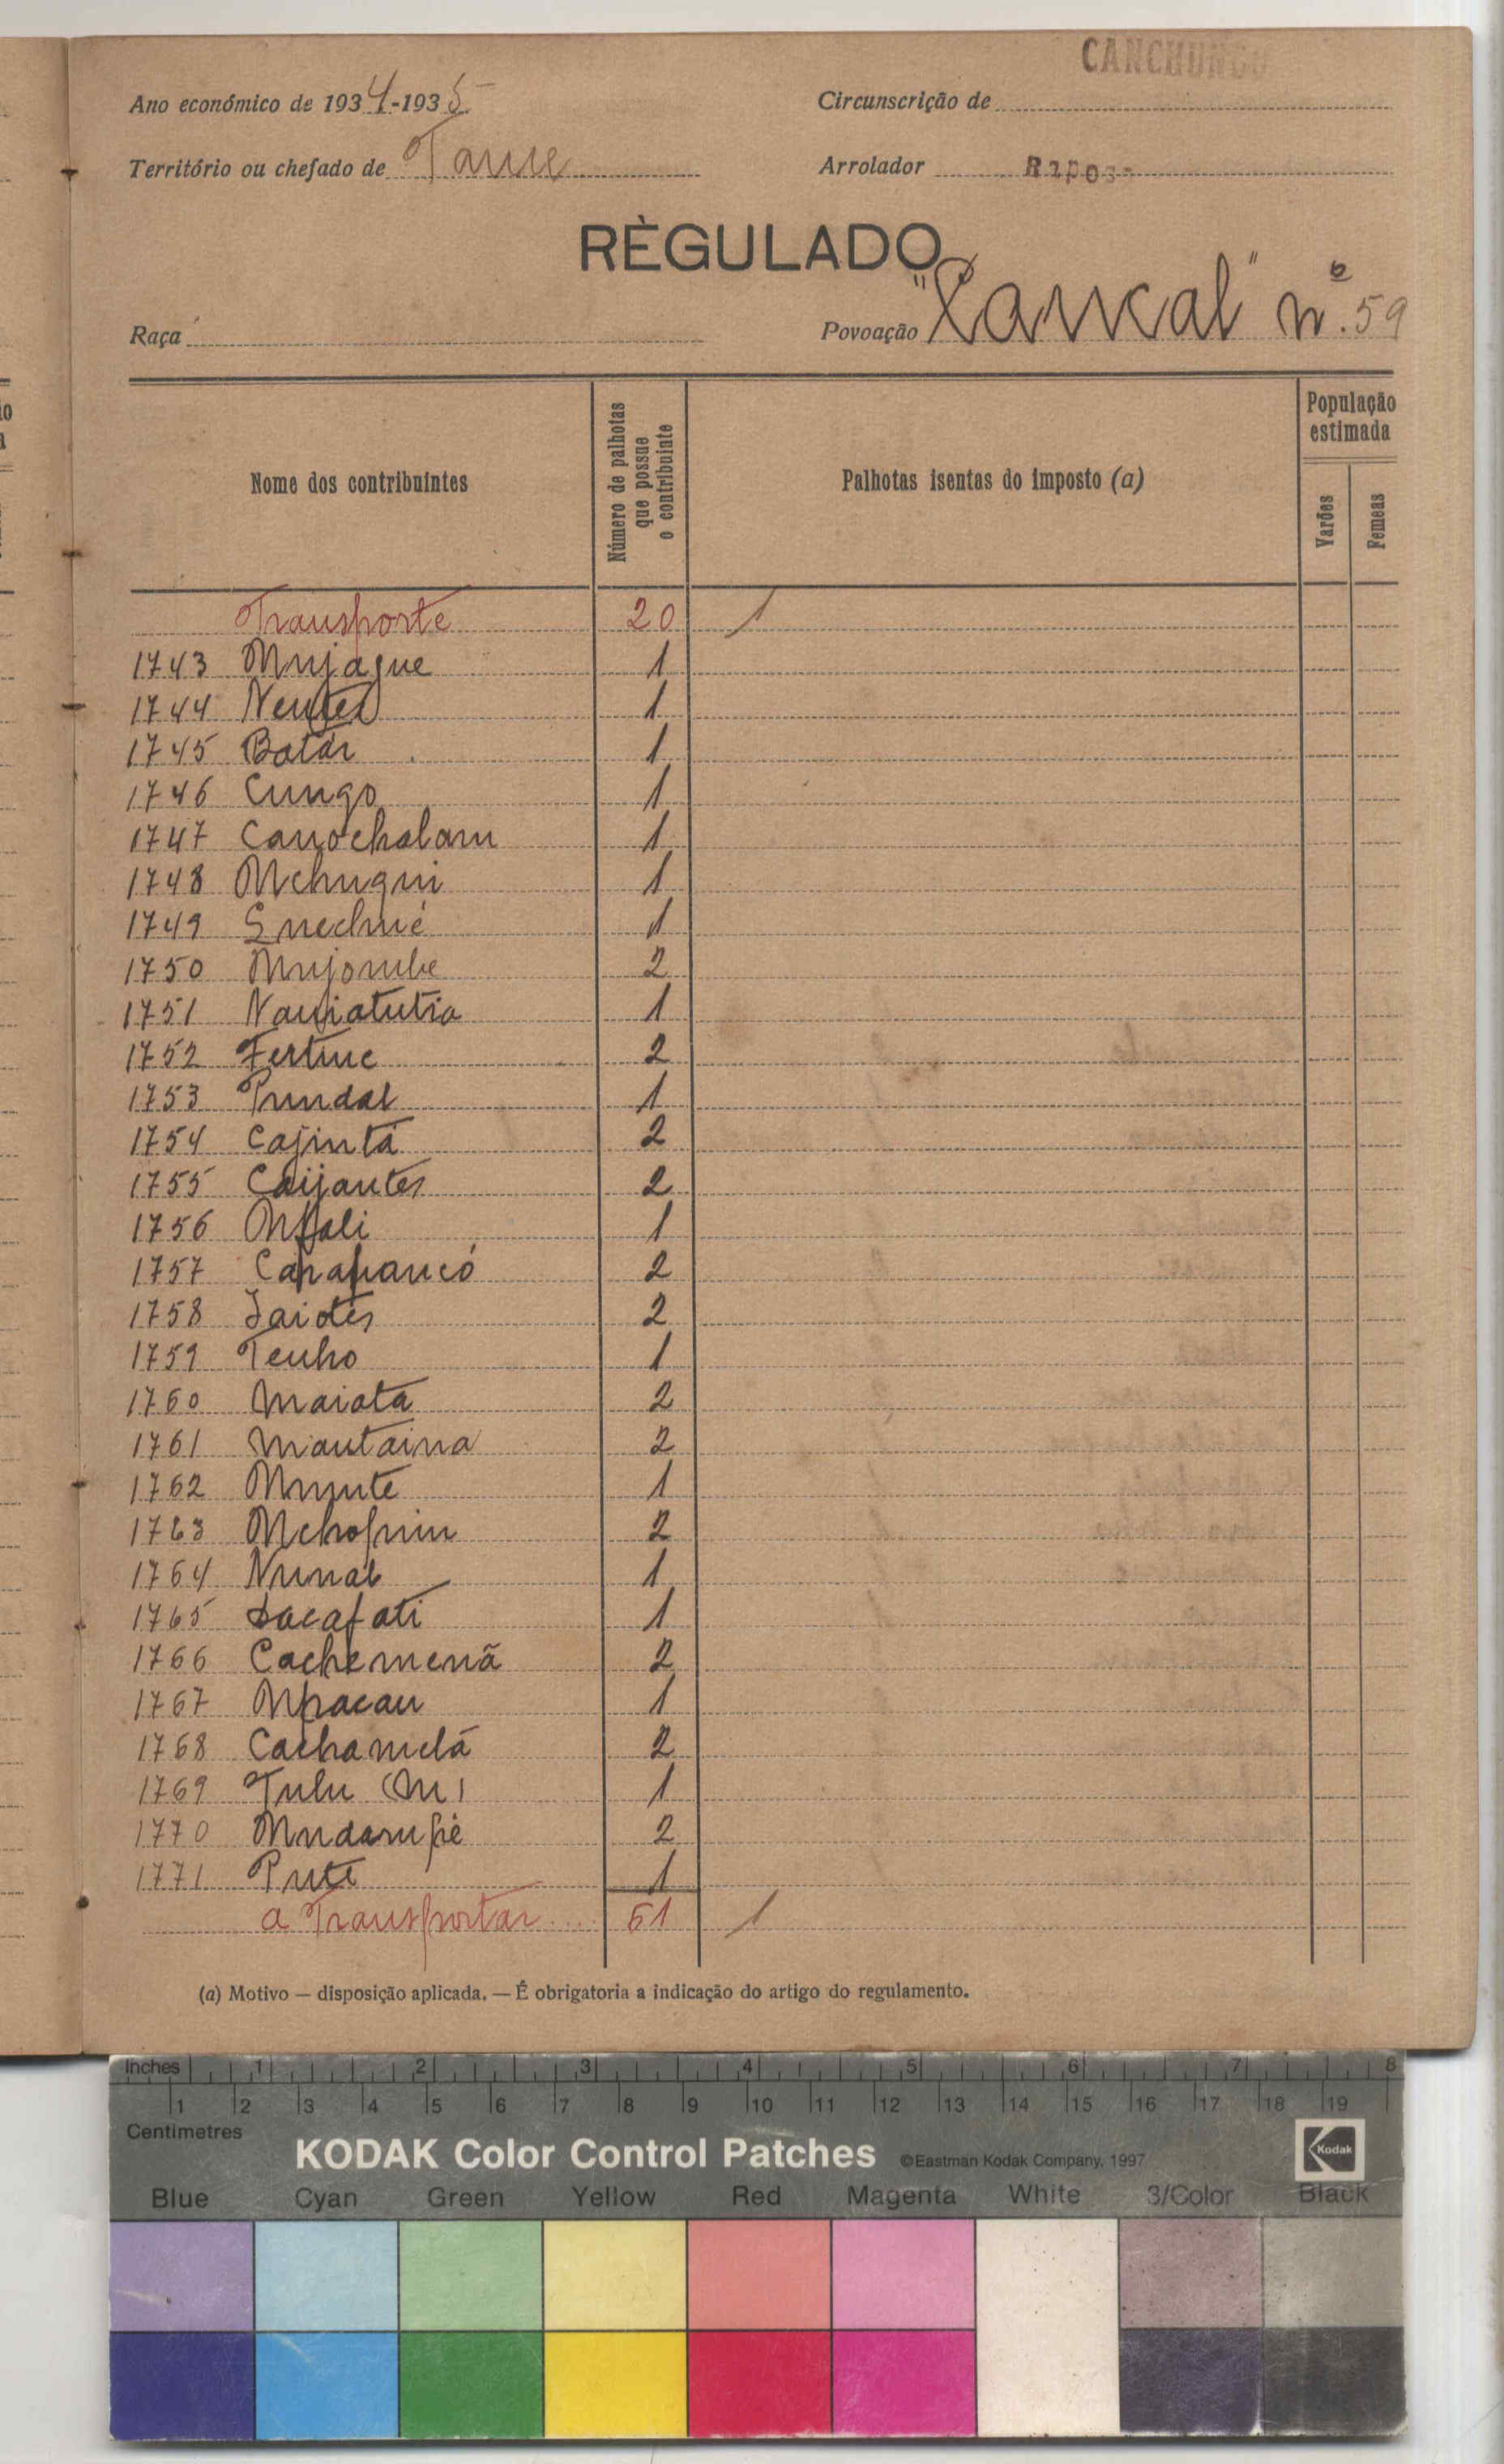 CANCHUNGO
Ano económico de 1934-1935
Circunscrição de
Território ou chefado de Tame
Arrolador Raposo
RÈGULADO
Raça
Povoação "Cancal" nº. 59
Nome dos contribuintes
Número de palhotas que possue o contribuinte
Palhotas isentas do imposto (a)
População estimada
Varões
Femeas
Transporte 20 1
1743 Mnjaque 1
1744 1
1745 Batar 1
1746 Cungo 1
1747 Canochalam 1
1748 Mchuqui 1
1749 1
1750 Mnjombe 2
1751 1
1752 2
1753 Pundal 1
1754 Cajintá 2
1755 Caijantes 2
1756 1
1757 Capapancó 2
1758 2
1759 Tenho 1
1760 Maiata 2
1761 Mantaina 2
1762 1
1763 2
1764 Nunal 1
1765 1
1766 Cachemenã 2
1767 Mpacau 1
1768 Cachamelá 2
1769 Tulu (M) 1
1770 2
1771 Pute 1
a Transportar 61 1
(a) Motivo — disposição aplicada. — É obrigatoria a indicação do artigo do regulamento.
Inches 1 2 3 4 5 6 7 8
1 2 3 4 5 6 7 8 9 10 11 12 13 14 15 16 17 18 19
Centimetres
KODAK Color Control Patches ©Eastman Kodak Company, 1997 Kodak
Blue Cyan Green Yellow Red Magenta White 3/Color Black